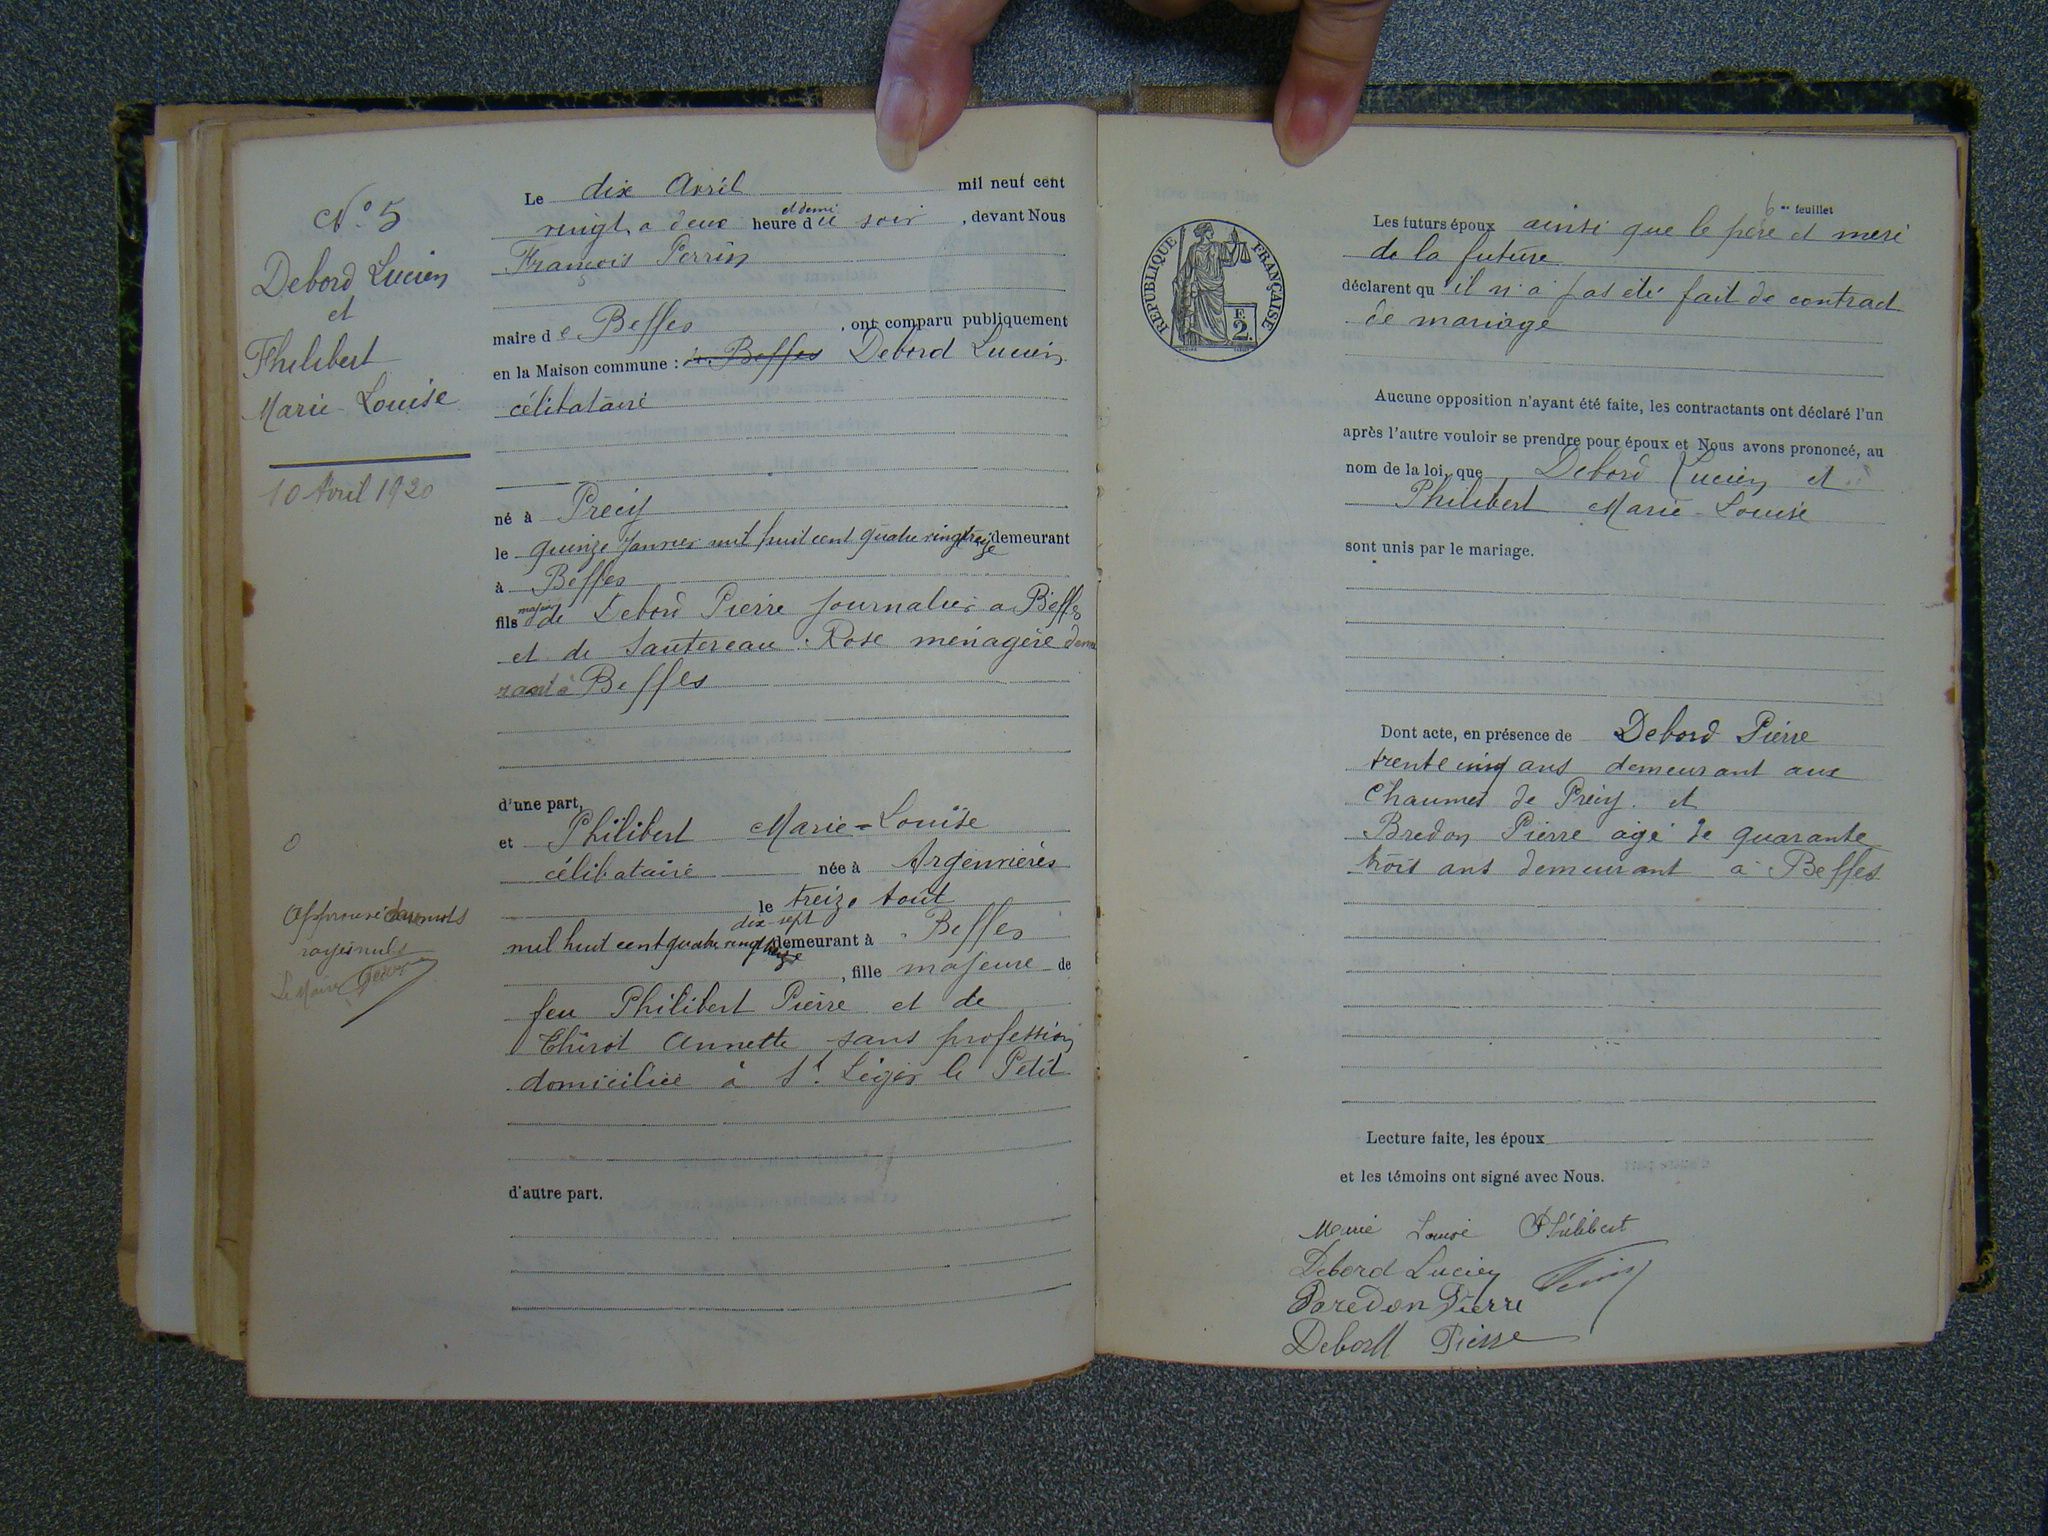 N° 5
Debord Lucien
et
Philibert
Marie-Louise
10 Avril 1920
Approuvé deux mots
rayés nuls
Le Maire
Le dix Avril mil neuf cent
vingt, a deux heure et demi du soir, devant Nous
François Perrin
maire de Beffes, ont comparu publiquement
en la Maison commune : de Beffes Debord Lucien
célibataire
né à Precy
le quinze Janvier mil huit cent quatre vingt treize demeurant
à Beffes
fils majeur de Debord Pierre journalier a Beffes
et de Sautereau Rose ménagère demeu
rant à Beffes
d'une part,
et Philibert Marie-Louise
célibataire née à Argenvières
le treize Août
mil huit cent quatre vingt dix-sept demeurant à Beffes
, fille majeure de
feu Philibert Pierre et de
Thirot Annette sans profession
domiciliée à St. Léger le Petit
d'autre part.
6me feuillet
RÉPUBLIQUE FRANÇAISE
2
Les futurs époux ainsi que le père et mère
de la future
déclarent qu'il n'a pas été fait de contract
de mariage
Aucune opposition n'ayant été faite, les contractants ont déclaré l'un
après l'autre vouloir se prendre pour époux et Nous avons prononcé, au
nom de la loi, que Debord Lucien et
Philibert Marie-Louise
sont unis par le mariage.
Dont acte, en présence de Debord Pierre
trente cinq ans demeurant aux
Chaumes de Précy. et
Bredon Pierre agé de quarante
trois ans demeurant a Beffes
Lecture faite, les époux
et les témoins ont signé avec Nous.
Marie Louise Philibert
Debord Lucien
Perrin
Boredon Pierre
Debord Pierre